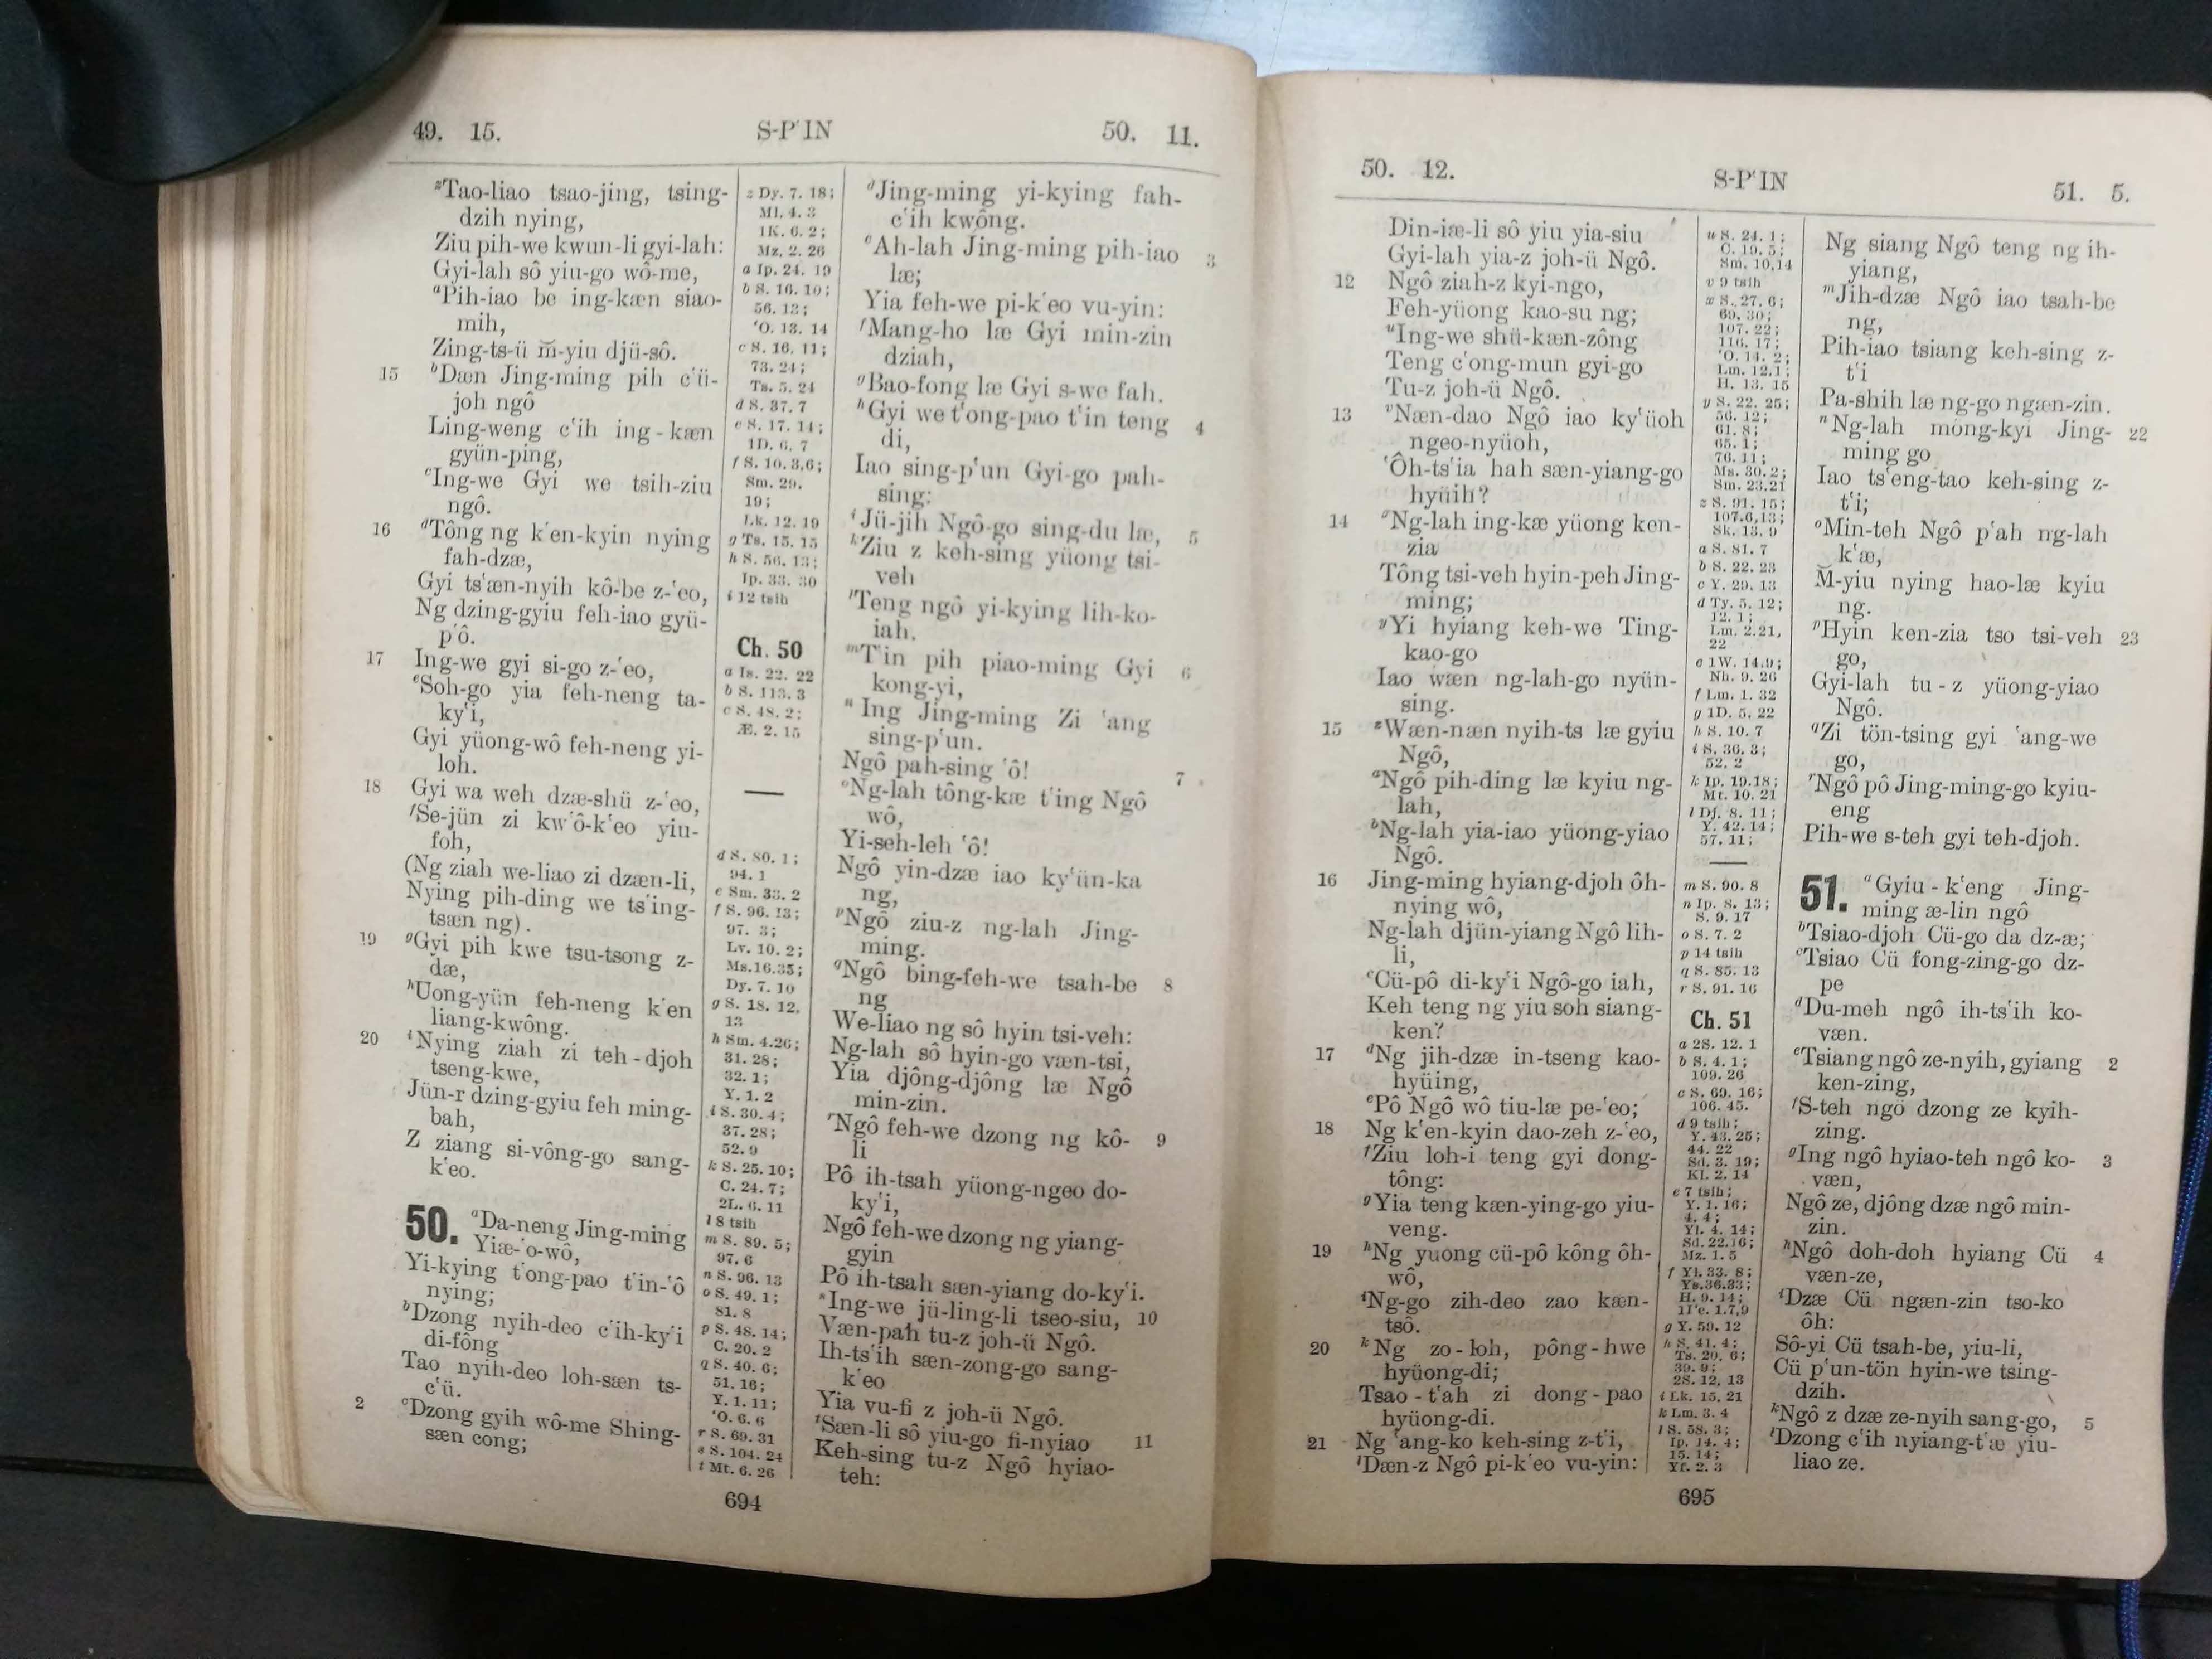 49. 15.
S-PʽIN
50. 11.
zTao-liao tsao-jing, tsing-
dzih nying,
Ziu pih-we kwun-li gyi-lah:
Gyi-lah sô yiu-go wô-me,
aPih-iao be ing-kæn siao-
mih,
Zing-ts-ü m̆-yiu djü-sô.
15
bDæn Jing-ming pih cʽü-
joh ngô
Ling-weng cʽih ing-kæn
gyün-ping,
cIng-we Gyi we tsih-ziu
ngô.
16
dTông ng kʽen-kyin nying
fah-dzæ,
Gyi tsʽæn-nyih kô-be z-ʽeo,
Ng dzing-gyiu feh-iao gyü-
pʽô.
17
Ing-we gyi si-go z-ʽeo,
eSoh-go yia feh-neng ta-
kyʽi,
Gyi yüong-wô feh-neng yi-
loh.
18
Gyi wa weh dzæ-shü z-ʽeo,
fSe-jün zi kwʽô-kʽeo yiu-
foh,
(Ng ziah we-liao zi dzæn-li,
Nying pih-ding we tsʽing-
tsæn ng).
19
gGyi pih kwe tsu-tsong z-
dæ,
hUong-yün feh-neng kʽen
liang-kwông.
20
iNying ziah zi teh-djoh
tseng-kwe,
Jün-r dzing-gyiu feh ming-
bah,
Z ziang si-vông-go sang-
kʽeo.
50. aDa-neng Jing-ming
Yiæ-ʽo-wô,
Yi-kying tʽong-pao tʽin-ʽô
nying;
bDzong nyih-deo cʽih-kyʽi
di-fông
Tao nyih-deo loh-sæn ts-
cʽü.
2
cDzong gyih wô-me Shing-
sæn cong;
z Dy. 7. 18;
Ml. 4. 3
1K. 6. 2;
Mz. 2. 26
a Ip. 24. 19
b S. 16. 10;
56. 13;
ʽO. 13. 14
c S. 16. 11;
73. 24;
Ts. 5. 24
d S. 37. 7
e S. 17. 14;
1D. 6. 7
f S. 10. 3,6;
Sm. 29.
19;
Lk. 12. 19
g Ts. 15. 15
h S. 56. 13;
Ip. 33. 30
i 12 tsih
Ch. 50
a Is. 22. 22
b S. 113. 3
c S. 48. 2;
Æ. 2. 15
d S. 80. 1;
94. 1
e Sm. 33. 2
f S. 96. 13;
97. 3;
Lv. 10. 2;
Ms.16.35;
Dy. 7. 10
g S. 18. 12,
13
h Sm. 4.26;
31. 28;
32. 1;
Y. 1. 2
i S. 30. 4;
37. 28;
52. 9
k S. 25. 10;
C. 24. 7;
2L. 6. 11
l 8 tsih
m S. 89. 5;
97. 6
n S. 96. 13
o S. 49. 1;
81. 8
p S. 48. 14;
C. 20. 2
q S. 40. 6;
51. 16;
Y. 1. 11;
ʽO. 6. 6
r S. 69. 31
s S. 104. 24
t Mt. 6. 26
dJing-ming yi-kying fah-
cʽih kwông.
eAh-lah Jing-ming pih-iao 3
læ;
Yia feh-we pi-kʽeo vu-yin:
fMang-ho læ Gyi min-zin
dziah,
gBao-fong læ Gyi s-we fah.
hGyi we tʽong-pao tʽin teng 4
di,
Iao sing-pʽun Gyi-go pah-
sing:
iJü-jih Ngô-go sing-du læ, 5
kZiu z keh-sing yüong tsi-
veh
lTeng ngô yi-kying lih-ko-
iah.
mTʽin pih piao-ming Gyi 6
kong-yi,
nIng Jing-ming Zi ʽang
sing-pʽun.
Ngô pah-sing ʽô! 7
oNg-lah tông-kæ tʽing Ngô
wô,
Yi-seh-leh ʽô!
Ngô yin-dzæ iao kyʽün-ka
ng,
pNgô ziu-z ng-lah Jing-
ming.
qNgô bing-feh-we tsah-be 8
ng
We-liao ng sô hyin tsi-veh:
Ng-lah sô hyin-go væn-tsi,
Yia djông-djông læ Ngô
min-zin.
rNgô feh-we dzong ng kô- 9
li
Pô ih-tsah yüong-ngeo do-
kyʽi,
Ngô feh-we dzong ng yiang-
gyin
Pô ih-tsah sæn-yiang do-kyʽi.
sIng-we jü-ling-li tseo-siu, 10
Væn-pah tu-z joh-ü Ngô.
Ih-tsʽih sæn-zong-go sang-
kʽeo
Yia vu-fi z joh-ü Ngô.
tSæn-li sô yiu-go fi-nyiao 11
Keh-sing tu-z Ngô hyiao-
teh:
694
50. 12.
S-PʽIN
51. 5.
Din-iæ-li sô yiu yia-siu
Gyi-lah yia-z joh-ü Ngô.
12
Ngô ziah-z kyi-ngo,
Feh-yüong kao-su ng;
uIng-we shü-kæn-zông
Teng cʽong-mun gyi-go
Tu-z joh-ü Ngô.
13
vNæn-dao Ngô iao kyʽüoh
ngeo-nyüoh,
ʽÔh-tsʽia hah sæn-yiang-go
hyüih?
14
Ng-lah ing-kæ yüong ken-
zia
Tông tsi-veh hyin-peh Jing-
ming;
yYi hyiang keh-we Ting-
kao-go
Iao wæn ng-lah-go nyün-
sing.
15
zWæn-næn nyih-ts læ gyiu
Ngô,
aNgô pih-ding læ kyiu ng-
lah,
bNg-lah yia-iao yüong-yiao
Ngô.
16
Jing-ming hyiang-djoh ôh-
nying wô,
Ng-lah djün-yiang Ngô lih-
li,
cCü-pô di-kyʽi Ngô-go iah,
Keh teng ng yiu soh siang-
ken?
17
dNg jih-dzæ in-tseng kao-
hyüing,
ePô Ngô wô tiu-læ pe-ʽeo;
18
Ng kʽen-kyin dao-zeh z-ʽeo,
fZiu loh-i teng gyi dong-
tông:
gYia teng kæn-ying-go yiu-
veng.
19
hNg yuong cü-pô kông ôh-
wô,
iNg-go zih-deo zao kæn-
tsô.
20
kNg zo-loh, pông-hwe
hyüong-di;
Tsao-tʽah zi dong-pao
hyüong-di.
21
Ng ʽang-ko keh-sing z-tʽi,
lDæn-z Ngô pi-kʽeo vu-yin:
u S. 24. 1;
C. 19. 5;
Sm. 10,14
v 9 tsih
x S. 27. 6;
69. 30;
107. 22;
116. 17;
ʽO. 14. 2;
Lm. 12.1;
H. 13. 15
y S. 22. 25;
56. 12;
61. 8;
65. 1;
76. 11;
Ms. 30. 2;
Sm. 23.21
z S. 91. 15;
107.6,13;
Sk. 13. 9
a S. 81. 7
b S. 22. 23
c Y. 29. 13
d Ty. 5. 12;
12. 1;
Lm. 2.21,
22
e 1W. 14.9;
Nh. 9. 26
f Lm. 1. 32
g 1D. 5. 22
h S. 10. 7
i S. 36. 3;
52. 2
k Ip. 19.18;
Mt. 10. 21
l Dj. 8. 11;
Y. 42. 14;
57. 11;
m S. 90. 8
n Ip. 8. 13;
S. 9. 17
o S. 7. 2
p 14 tsih
q S. 85. 13
r S. 91. 16
Ch. 51
a 2S. 12. 1
b S. 4. 1;
109. 26
c S. 69. 16;
106. 45.
d 9 tsih;
Y. 43. 25;
44. 22
Sd. 3. 19;
Kl. 2. 14
e 7 tsih;
Y. 1. 16;
4. 4;
Yl. 4. 14;
Sd. 22.16;
Mz. 1. 5
f Yl. 33. 8;
Ys.36.33;
H. 9. 14;
1Yc. 1.7,9
g Y. 59. 12
h S. 41. 4;
Ts. 20. 6;
39. 9;
2S. 12, 13
i Lk. 15. 21
k Lm. 3. 4
l S. 58. 3;
Ip. 14. 4;
15. 14;
Yf. 2. 3
Ng siang Ngô teng ng ih-
yiang,
mJih-dzæ Ngô iao tsah-be
ng,
Pih-iao tsiang keh-sing z-
tʽi
Pa-shih læ ng-go ngæn-zin.
nNg-lah mông-kyi Jing- 22
ming go
Iao tsʽeng-tao keh-sing z-
tʽi;
oMin-teh Ngô pʽah ng-lah
kʽæ,
M̆-yiu nying hao-læ kyiu
ng.
pHyin ken-zia tso tsi-veh 23
go,
Gyi-lah tu-z yüong-yiao
Ngô.
qZi tön-tsing gyi ʽang-we
go,
rNgô pô Jing-ming-go kyiu-
eng
Pih-we s-teh gyi teh-djoh.
51. aGyiu-kʽeng Jing-
ming æ-lin ngô
bTsiao-djoh Cü-go da dz-æ;
cTsiao Cü fong-zing-go dz-
pe
dDu-meh ngô ih-tsʽih ko-
væn.
eTsiang ngô ze-nyih, gyiang 2
ken-zing,
fS-teh ngô dzong ze kyih-
zing.
gIng ngô hyiao-teh ngô ko- 3
væn,
Ngô ze, djông dzæ ngô min-
zin.
hNgô doh-doh hyiang Cü 4
væn-ze,
iDzæ Cü ngæn-zin tso-ko
ôh:
Sô-yi Cü tsah-be, yiu-li,
Cü pʽun-tön hyin-we tsing-
dzih.
kNgô z dzæ ze-nyih sang-go, 5
lDzong cʽih nyiang-tʽæ yiu-
liao ze.
695